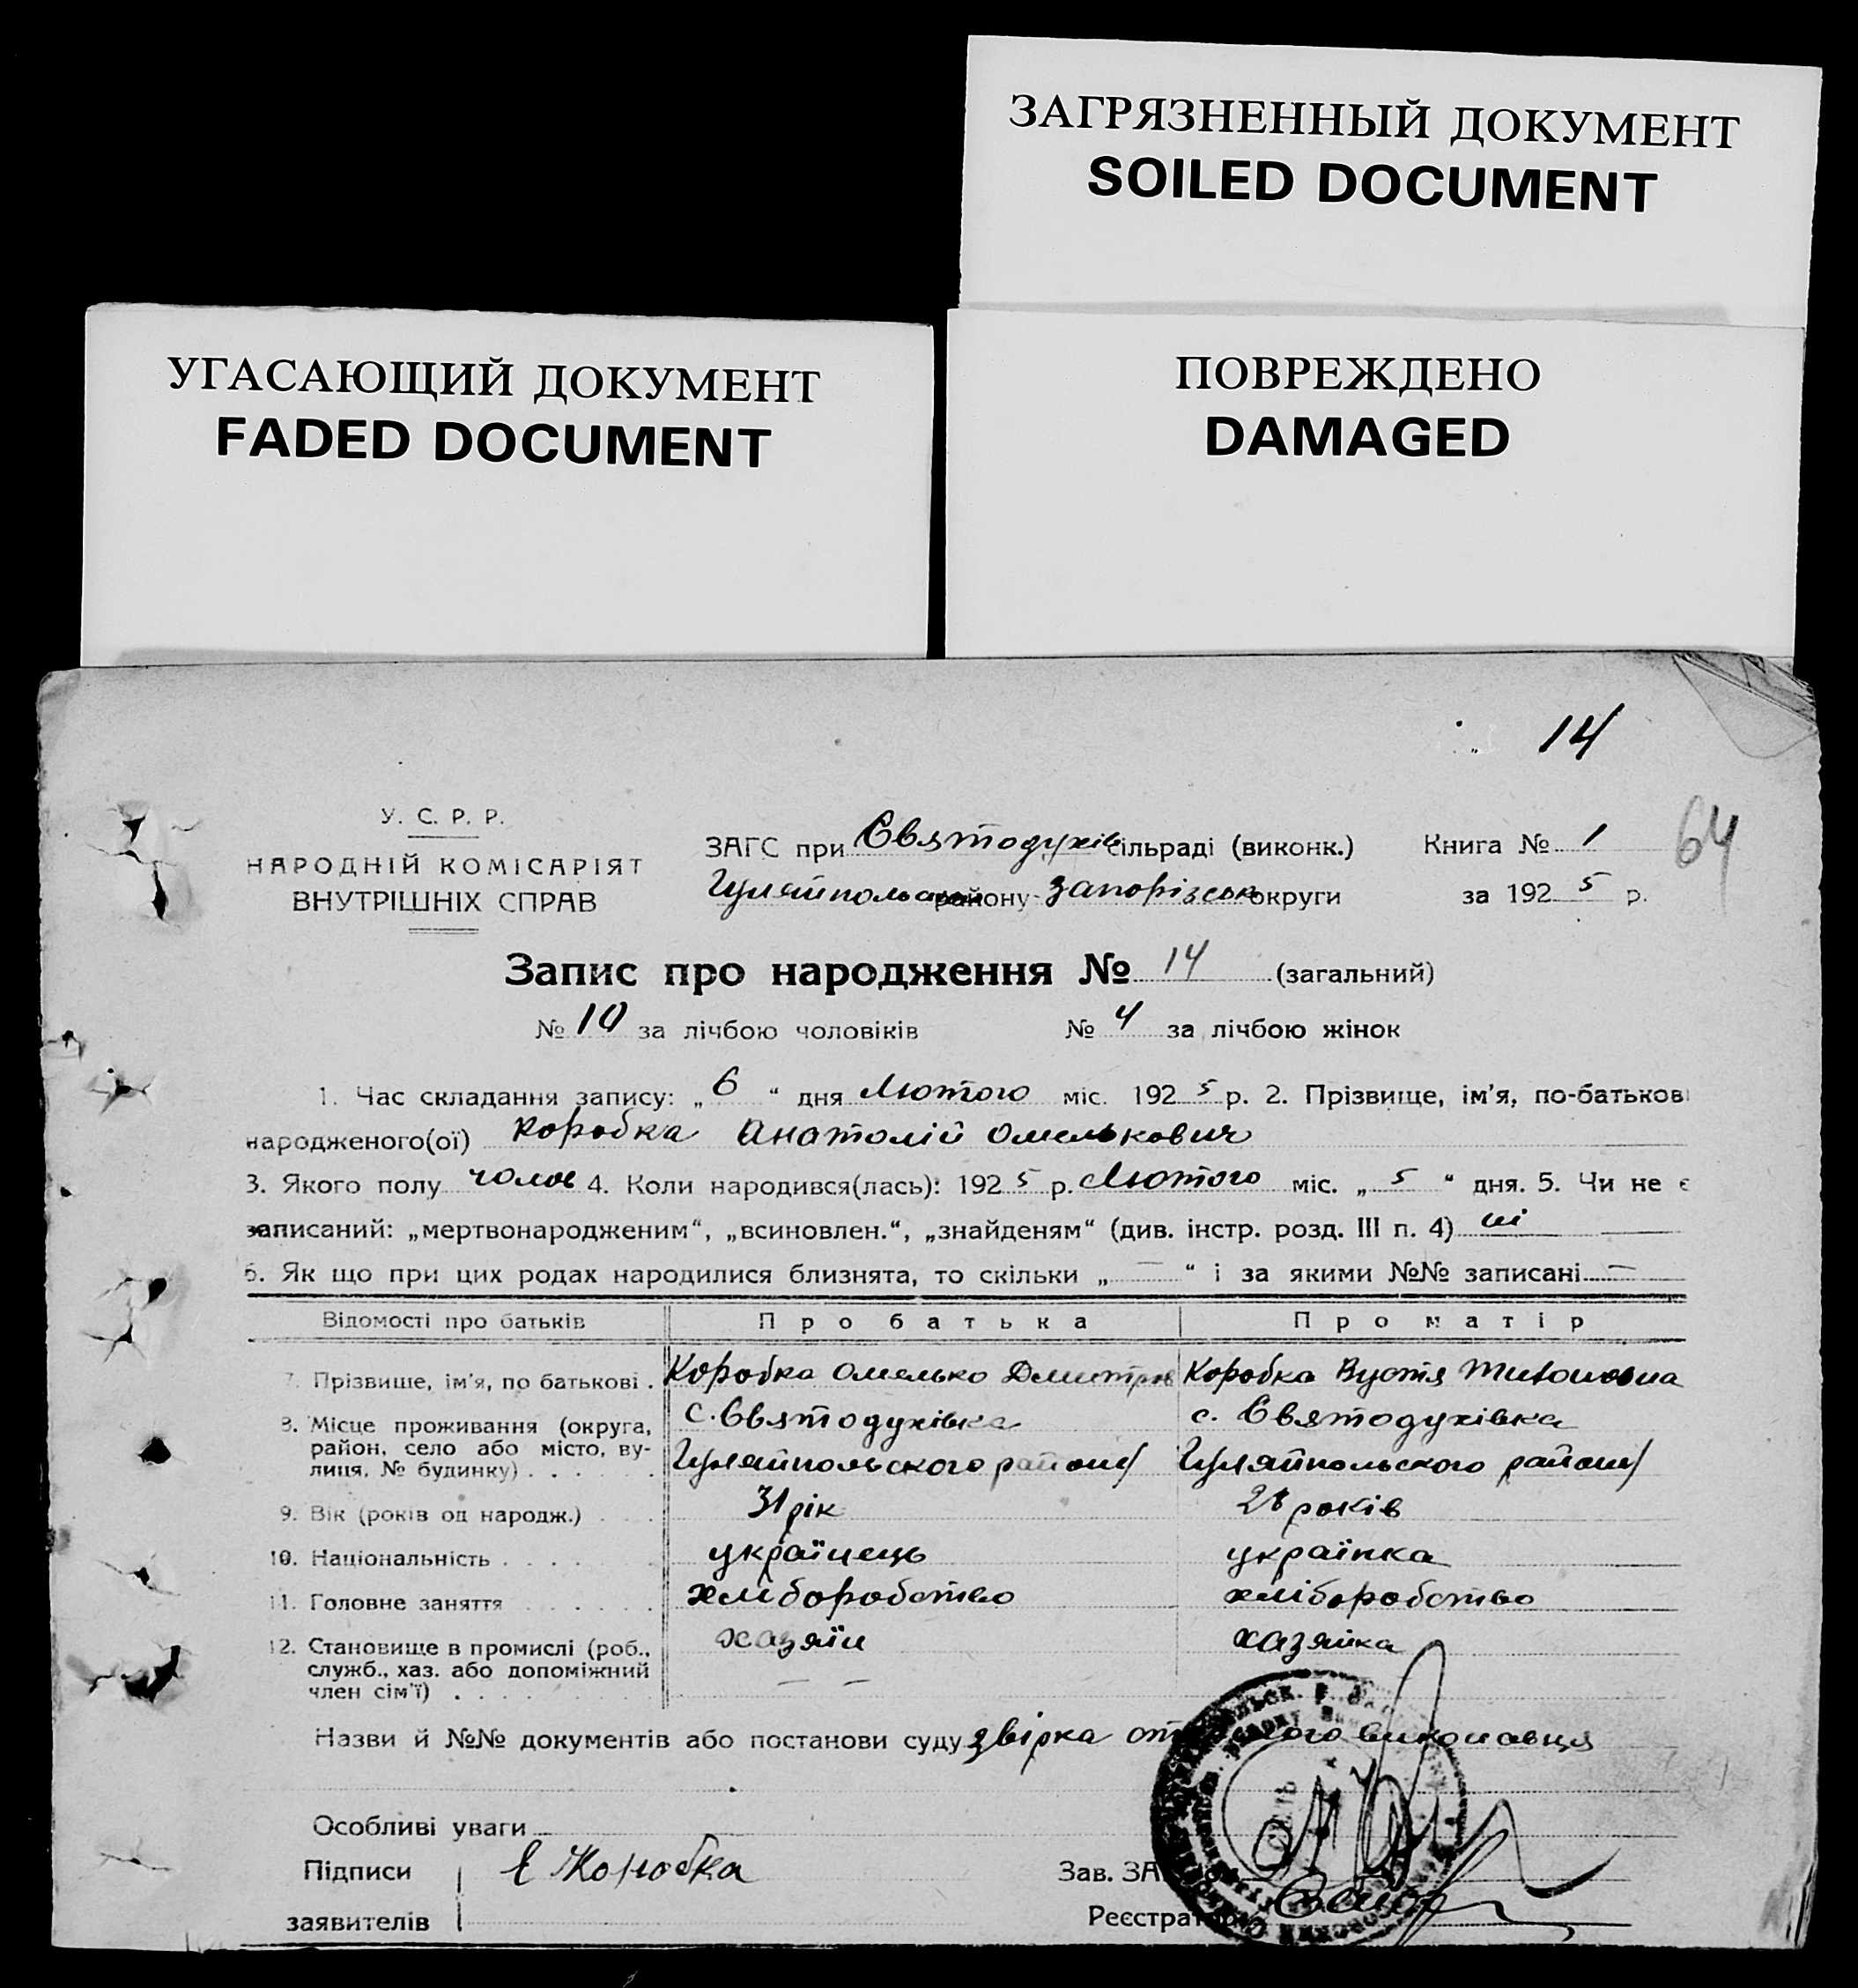 ЗАГРЯЗНЕННЫЙ ДОКУМЕНТ
SOILED DOCUMENT
УГАСАЮЩИЙ ДОКУМЕНТ
FADED DOCUMENT
ПОВРЕЖДЕНО
DAMAGED
14
64
У. С. Р. Р.
НАРОДНІЙ КОМІСАРІЯТ
ВНУТРІШНІХ СПРАВ
ЗАГС при Святодухів сільраді (виконк.) Книга № 1
Гуляйпольськ району Запорізськ округи за 1925 р.
Запис про народження № 14 (загальний)
№ 10 за лічбою чоловіків № 4 за лічбою жінок
1. Час складання запису: „6“ дня Лютого міс. 1925 р. 2. Прізвище, ім'я, по-батькові
народженого(ої) Коробка Анатолій Омелькович
3. Якого полу чолов 4. Коли народився(лась): 1925 р. Лютого міс. „5“ дня. 5. Чи не є
записаний: „мертвонародженим“, „всиновлен.“, „знайденям“ (див. інстр. розд. III п. 4) ні
6. Як що при цих родах народилися близнята, то скільки „—“ і за якими №№ записані —
Відомості про батьків Про батька Про матір
7. Прізвише, ім'я, по батькові . Коробка Омелько Дмитров Коробка Вустя
8. Місце проживання (округа, район, село або місто, вулиця, № будинку) . . . . . . с. Святодухівка Гуляйпольского району с. Святодухівка Гуляйпольского району
9. Вік (років од народж.) . . . 31 рік 28 років
10. Національність . . . . . українець українка
11. Головне заняття . . . . . . хліборобство хліборобство
12. Становище в промислі (роб., служб., хаз. або допоміжний член сім'ї) . . . . . . . . хазяїн — — хазяйка
Назви й №№ документів або постанови суду звірка виконавця
Особливі уваги
Підписи Є Коробка Зав. ЗА
заявителів Реєстрат